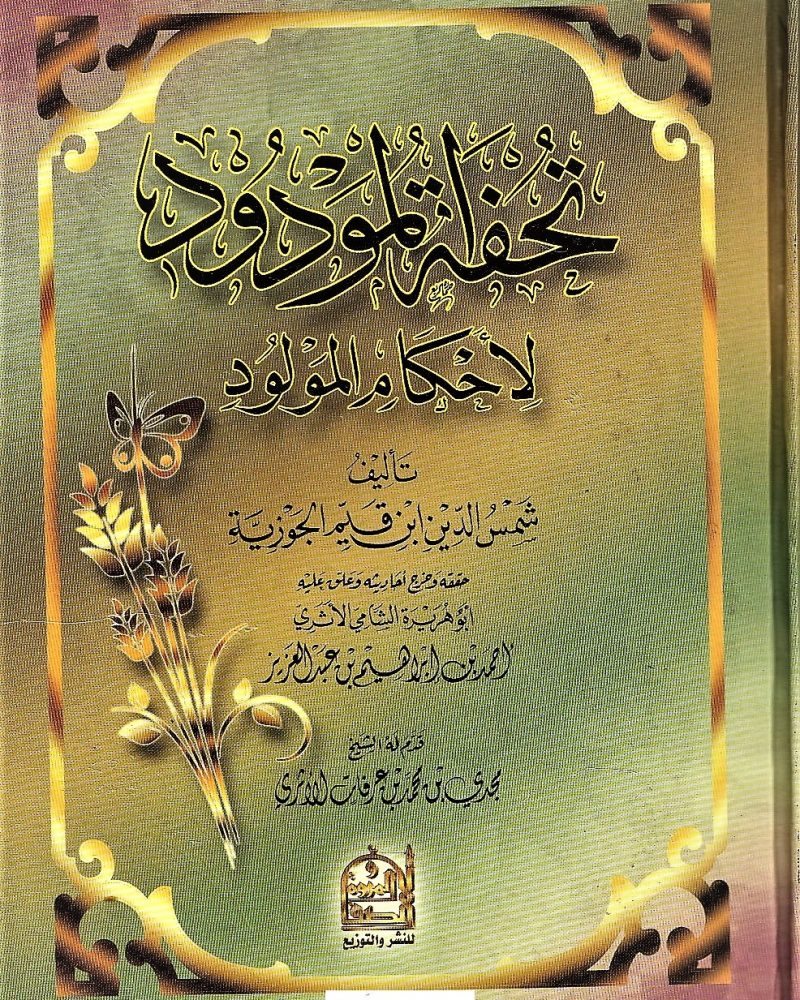 تُحْفَةُ المَوْدُودِ
لِأَحْكَامِ المَوْلُودِ
تَأليفُ
شَمْسُ الدِّيْنِ ابْنِ قَيِّمِ الجَوْزِيَّةِ
حققه وخرج أحاديثه وعلق عليه
أبُو هُرَيْرَة الشامي الأثري
أحمد بن إبراهيم بن عبد العزيز
قدم له الشيخ
مجدي بن محمد بن عرفات الأثري
للنشر والتوزيع